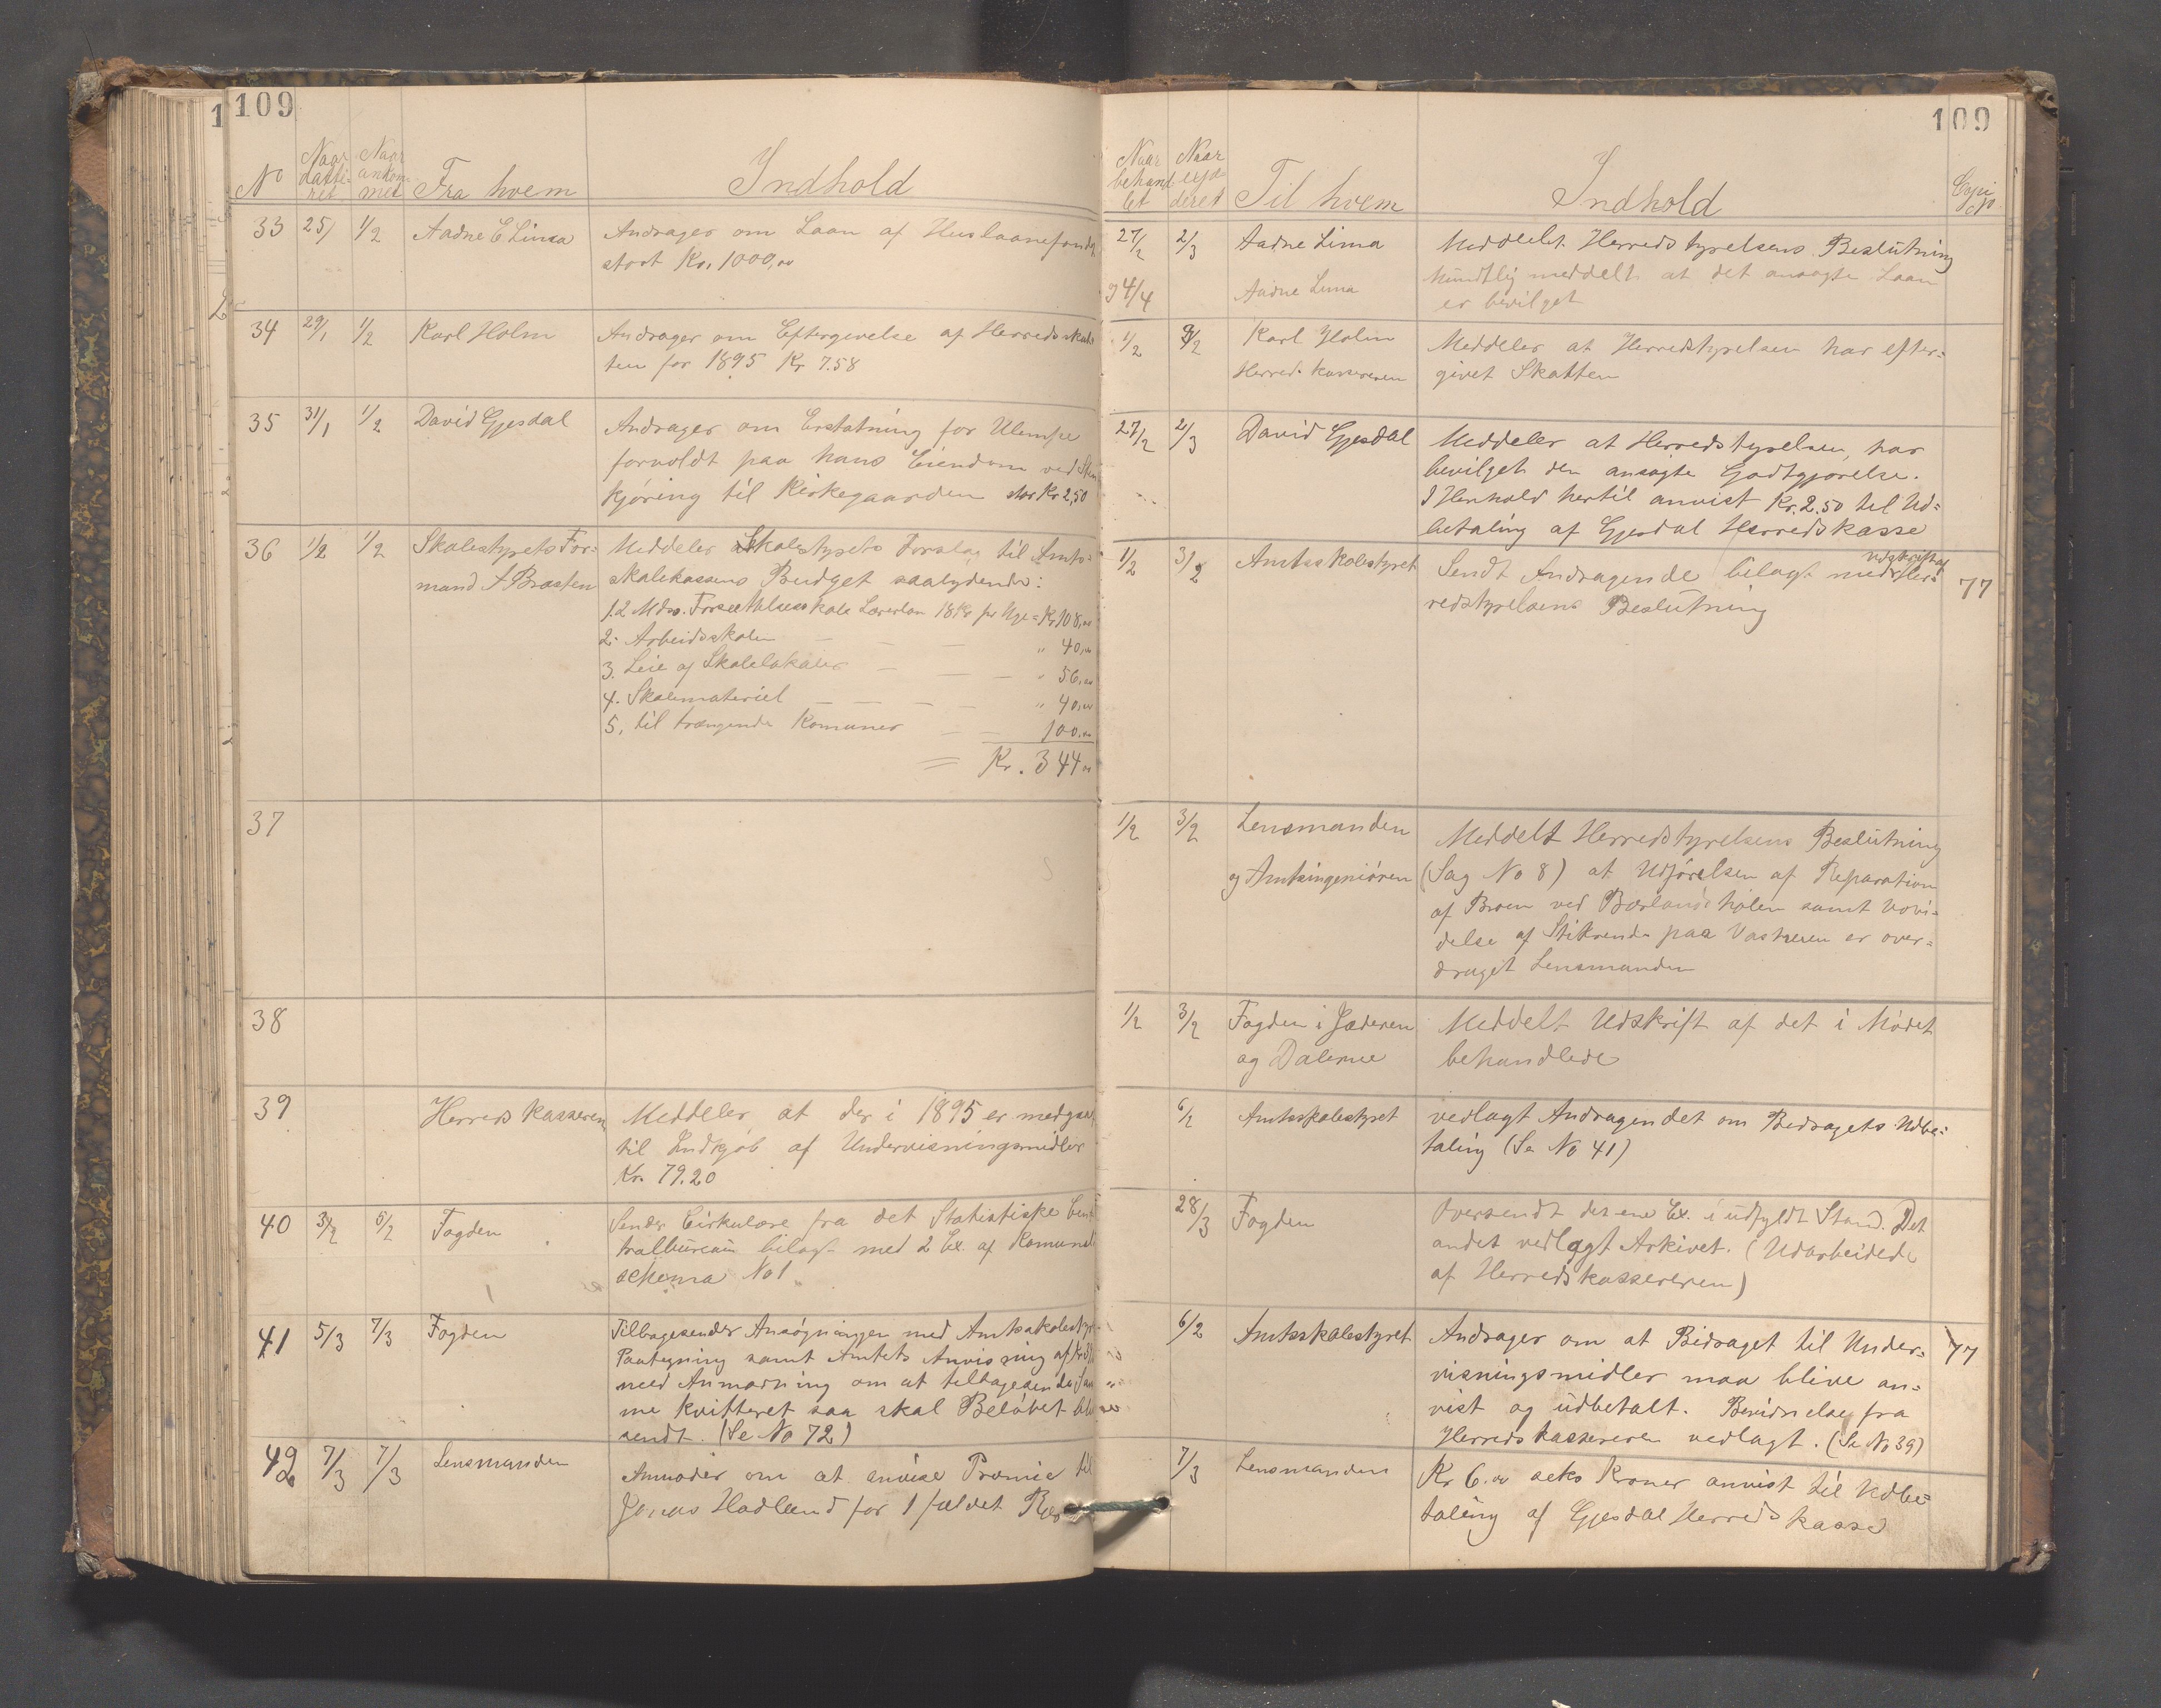 109
No
Naar
datte-
ret
Naar
ankom-
met
Fra hvem
Indhold
33 25/ 1/2 Aadne E Lima Andrager om Laan af Huslaanefondet
stort Kr. 1000,00
34 29/1 1/2 Karl Holm Andrager om Eftergivelse af Herredsskat-
ten for 1895 Kr 7.58
35 31/1 1/2 David Gjesdal Andrager om Erstatning for Ulempe
forvoldt paa hans Eiendom ved
kjøring til Kirkegaarden stor Kr 2,50
36 1/2 1/2 Skolestyrets For- Meddeler Skolestyrets Forslag til Amts-
mand Braaten skolekassens Budget saalydende:
1. 2 Mdrs. Fortsættelsesskole Lærerløn 18 Kr per Uge = Kr 108,00
2. Arbeidsskolen — — " 40,00
3. Leie af Skolelokaler — — — " 56,00
4. Skolemateriel — — — — " 40,00
5, til trængende Komuner — — 100,00
= Kr. 344 00
37
38
39 Herredskasseren Meddeler, at der i 1895 er medgaaet
til Indkjøb af Undervisningsmidler
Kr. 79.20
40 3/2 5/2 Fogden Sender Cirkulære fra det Statistiske Cen-
tralbureau bilagt med 2 Ex. af Komune
schema No 1
41 5/3 7/3 Fogden Tilbagesender Ansøgningen med Amtsskolestyr-
Paategning samt Amtets Anvisning af Kr
med Anmodning om at tilbagesende
me kvitteret saa skal Beløbet bli
sendt. (Se No 72)
42 7/3 7/3 Lensmanden Anmoder om at anvise Præmie til
Jonas Hadland for 1 fældet Ræv
109
Naar
behand
let
Naar
expe-
deret
Til hvem
Indhold
Copi
No
27/2 2/3 Aadne Lima Meddelt Herredstyrelsens Beslutning
4/4 Aadne Lima Mundtlig meddelt at det ansøgte Laan
er bevilget
1/2 3/2 Karl Holm Meddeler at Herredstyrelsen har efter-
Herreds kassereren givet Skatten
27/2 2/3 David Gjesdal Meddeler at Herredstyrelsen, har
bevilget den ansøgte Godtgjørelse.
I Henhold hertil anvist Kr. 2.50 til Ud-
betaling af Gjesdal Herredskasse
1/2 3/2 Amtsskolestyret Sendt Andragende bilagt med udskrift af Her-
redstyrelsens Beslutning 77
1/2 3/2 Lensmanden Meddelt Herredstyrelsens Beslutning
og Amtsingeniøren (Sag No 8) at Udførelsen af Reparation
af Broen ved Bærlandshølen samt
delse af Stikrende paa er over-
draget Lensmanden
1/2 3/2 Fogden i Jæderen Meddelt Udskrift af det i Mødet
og Dalerne behandlede
6/2 Amtsskolestyret vedlagt Andragendet om Bidragets Udbe-
taling (Se No 41)
28/3 Fogden Oversendt det ene Ex. i udfyldt Stand. Det
andet vedlagt Arkivet. (Udarbeidede
af Herredskassereren)
6/2 Amtsskolestyret Andrager om at Bidraget til Under- 77
visningsmidler maa blive an-
vist og udbetalt. Bevidnelse fra
Herredskassereren vedlagt. (Se No 39)
7/3 Lensmanden Kr 6.00 seks Kroner anvist til Udbe-
taling af Gjesdal Herredskasse